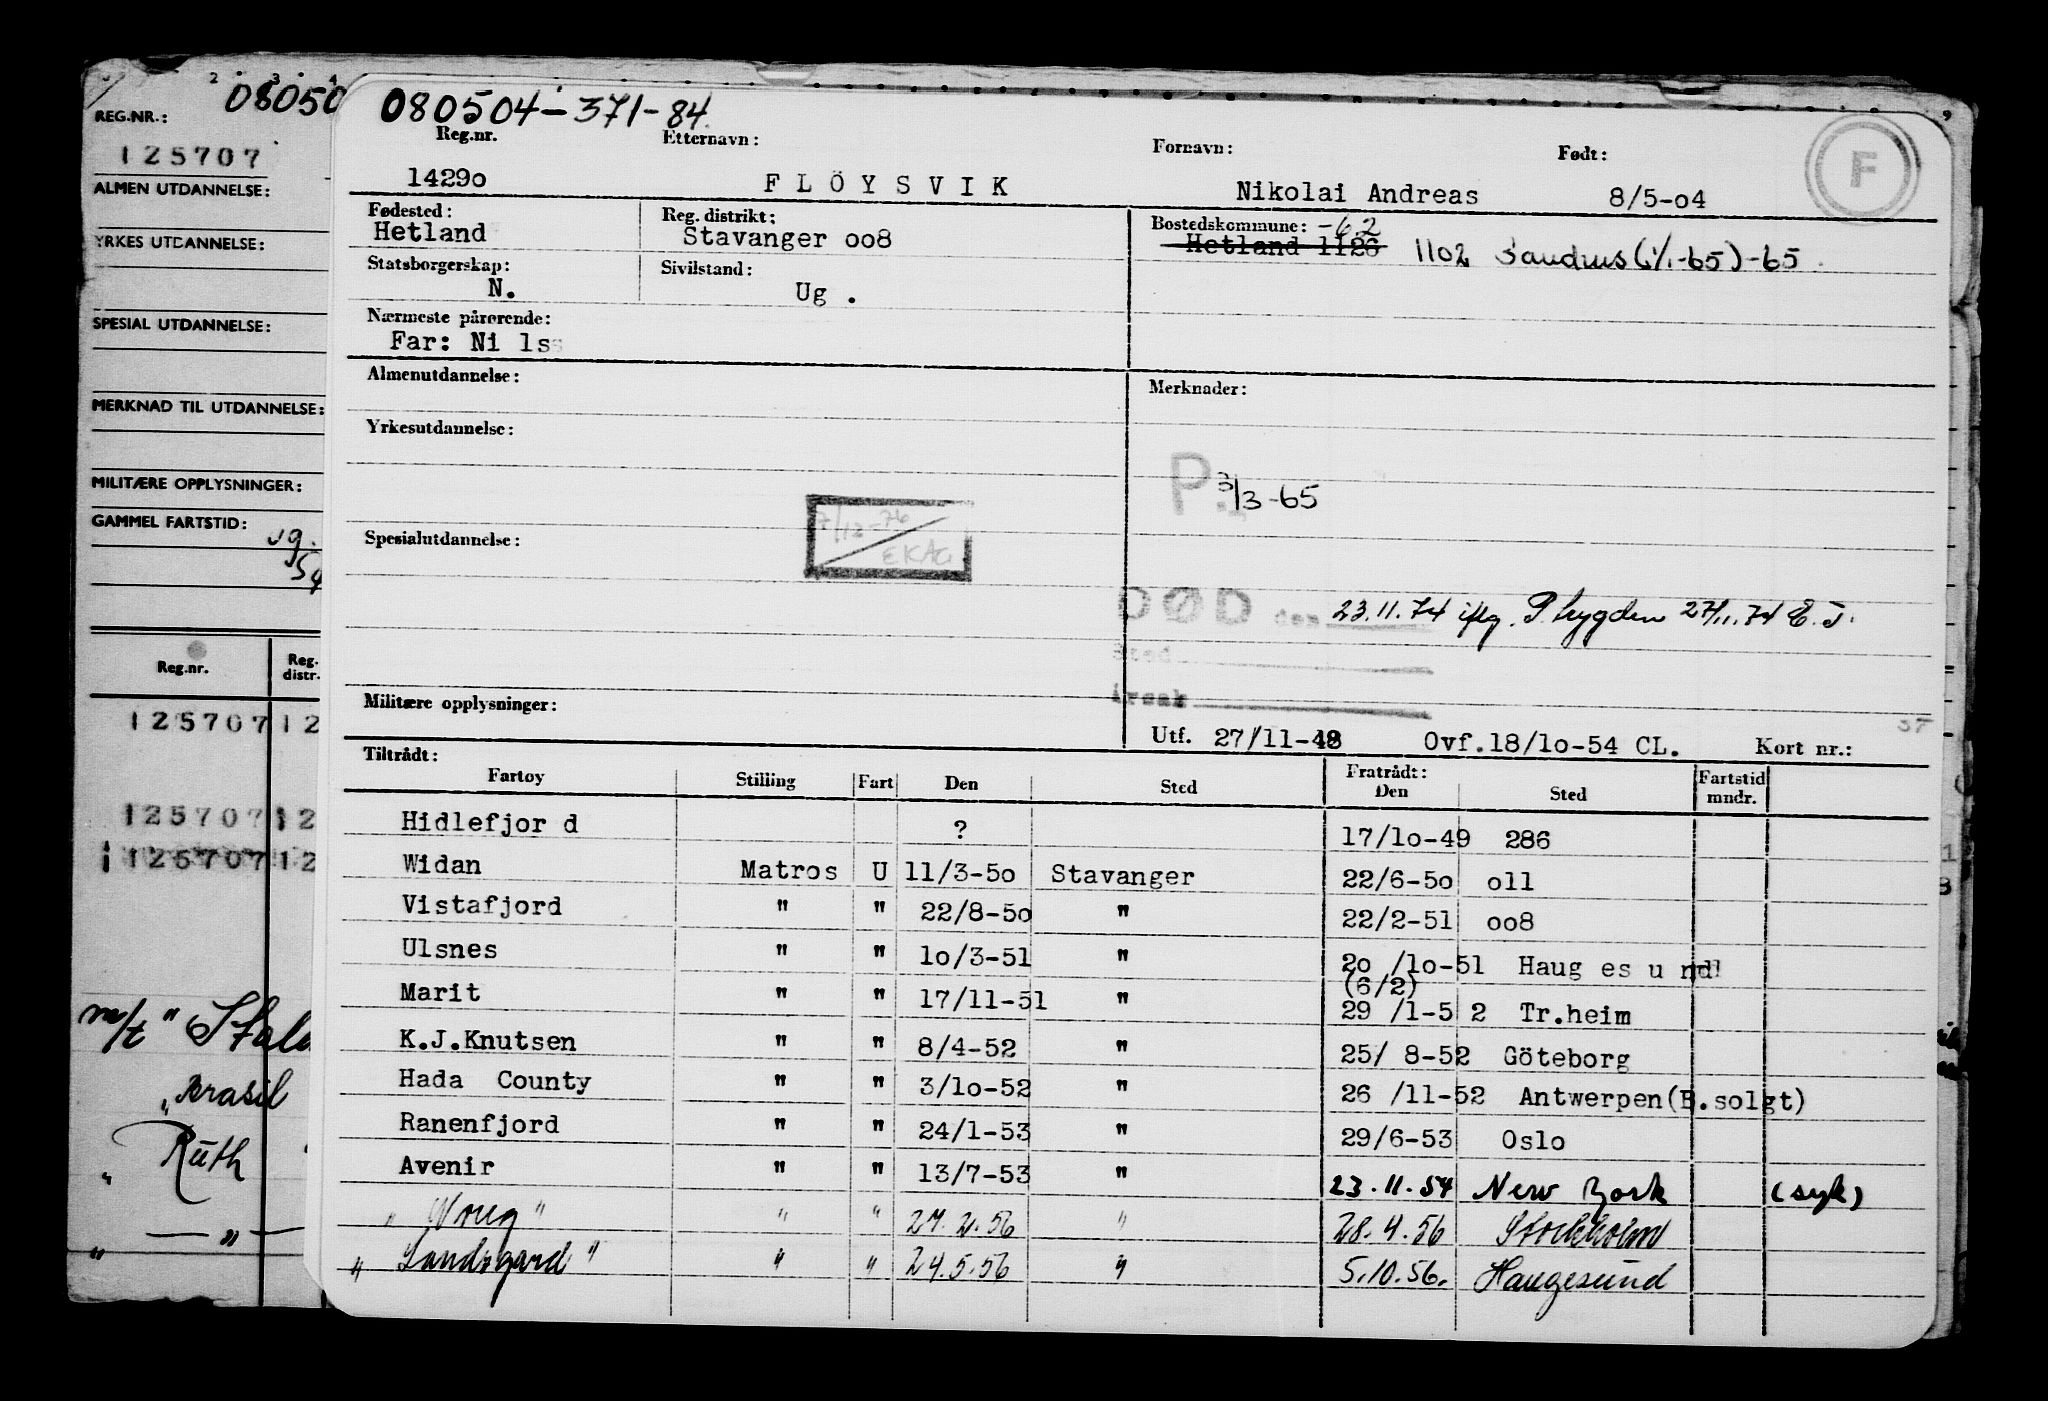 2 3 4
08050
REG.NR.:
125707
ALMEN UTDANNELSE:
YRKES UTDANNELSE:
SPESIAL UTDANNELSE:
MERKNAD TIL UTDANNELSE:
MILITÆRE OPPLYSNINGER:
GAMMEL FARTSTID:
Reg.nr. Reg. distr.
125707 12
125707 12
125707 12
m/t "
" Brasil
" Ruth
" — " —
080504-371-84
Reg.nr. Etternavn: Fornavn: Født: F
1429o FLÖYSVIK Nikolai Andreas 8/5-o4
Fødested: Reg. distrikt: Bostedskommune: -62
Hetland Stavanger oo8 Hetland 1126 1102 Sandnes (1/1-65)-65
Statsborgerskap: Sivilstand:
N. Ug .
Nærmeste pårørende:
Far: Ni ls
Almenutdannelse: Merknader:
Yrkesutdannelse:
P. 3/3-65
7/12-76
EKAG
Spesialutdannelse:
DØD den 23.11.74 iflg. P.trygden 27/11.74 E.J.
Sted
Årsak
Militære opplysninger:
Utf. 27/11-48 Ovf.18/1o-54 CL. Kort nr.:
Tiltrådt: Fratrådt: Fartstid
Fartøy Stilling Fart Den Sted Den Sted mndr.
Hidlefjor d ? 17/1o-49 286
Widan Matros U 11/3-5o Stavanger 22/6-5o o11
Vistafjord " " 22/8-5o " 22/2-51 oo8
Ulsnes " " 1o/3-51 " 2o /1o-51 Haug es u nd
(6/2)
Marit " " 17/11-51 " 29 /1-5 2 Tr.heim
K.J.Knutsen " " 8/4-52 " 25/ 8-52 Göteborg
Hada County " " 3/1o-52 " 26 /11-52 Antwerpen(B.solgt)
Ranenfjord " " 24/1-53 " 29/6-53 Oslo
Avenir " " 13/7-53 " 23.11.54 New York (syk)
" " " " 27.2.56 " 28.4.56 Stockholm
" Sandsgard " " " 24.5.56 " 5.10.56. Haugesund